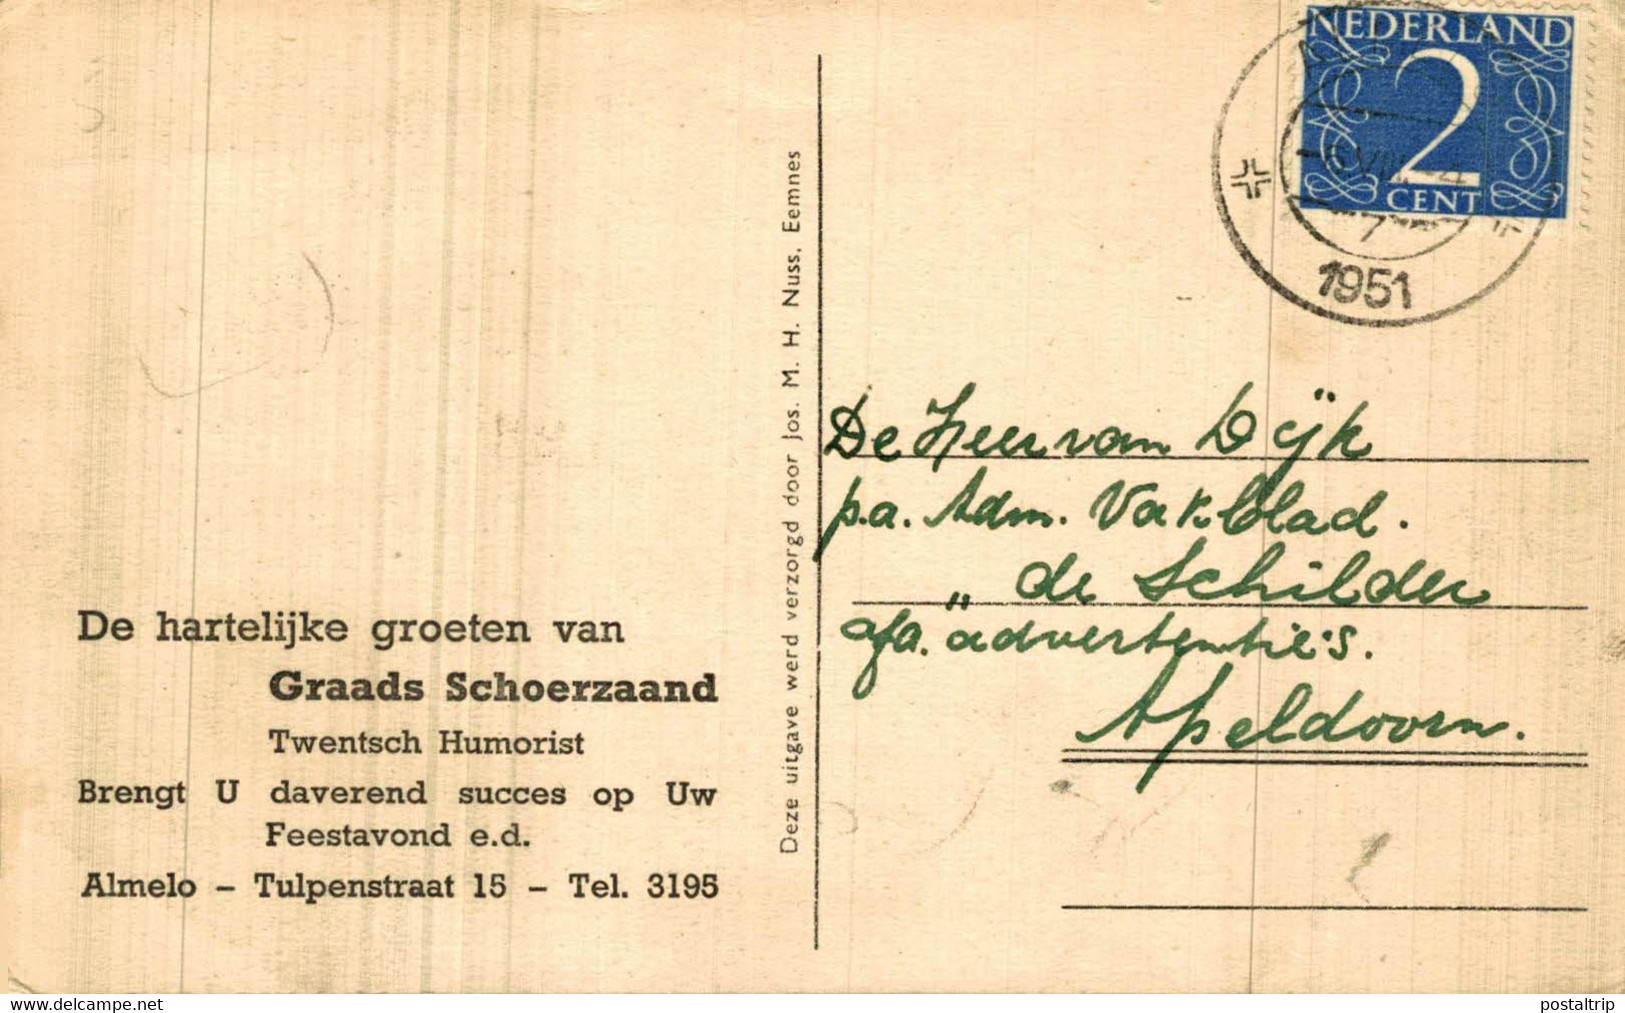 NEDERLAND
2
CENT
7
1951
De Heer van Dijk
p.a. Adm. Vakblad.
„ de Schilder
afd. advertentie's.
Apeldoorn.
Deze uitgave werd verzorgd door Jos. M. H. Nuss, Eemnes
De hartelijke groeten van
Graads Schoerzaand
Twentsch Humorist
Brengt U daverend succes op Uw
Feestavond e.d.
Almelo – Tulpenstraat 15 – Tel. 3195
delcampe.net
postaltrip